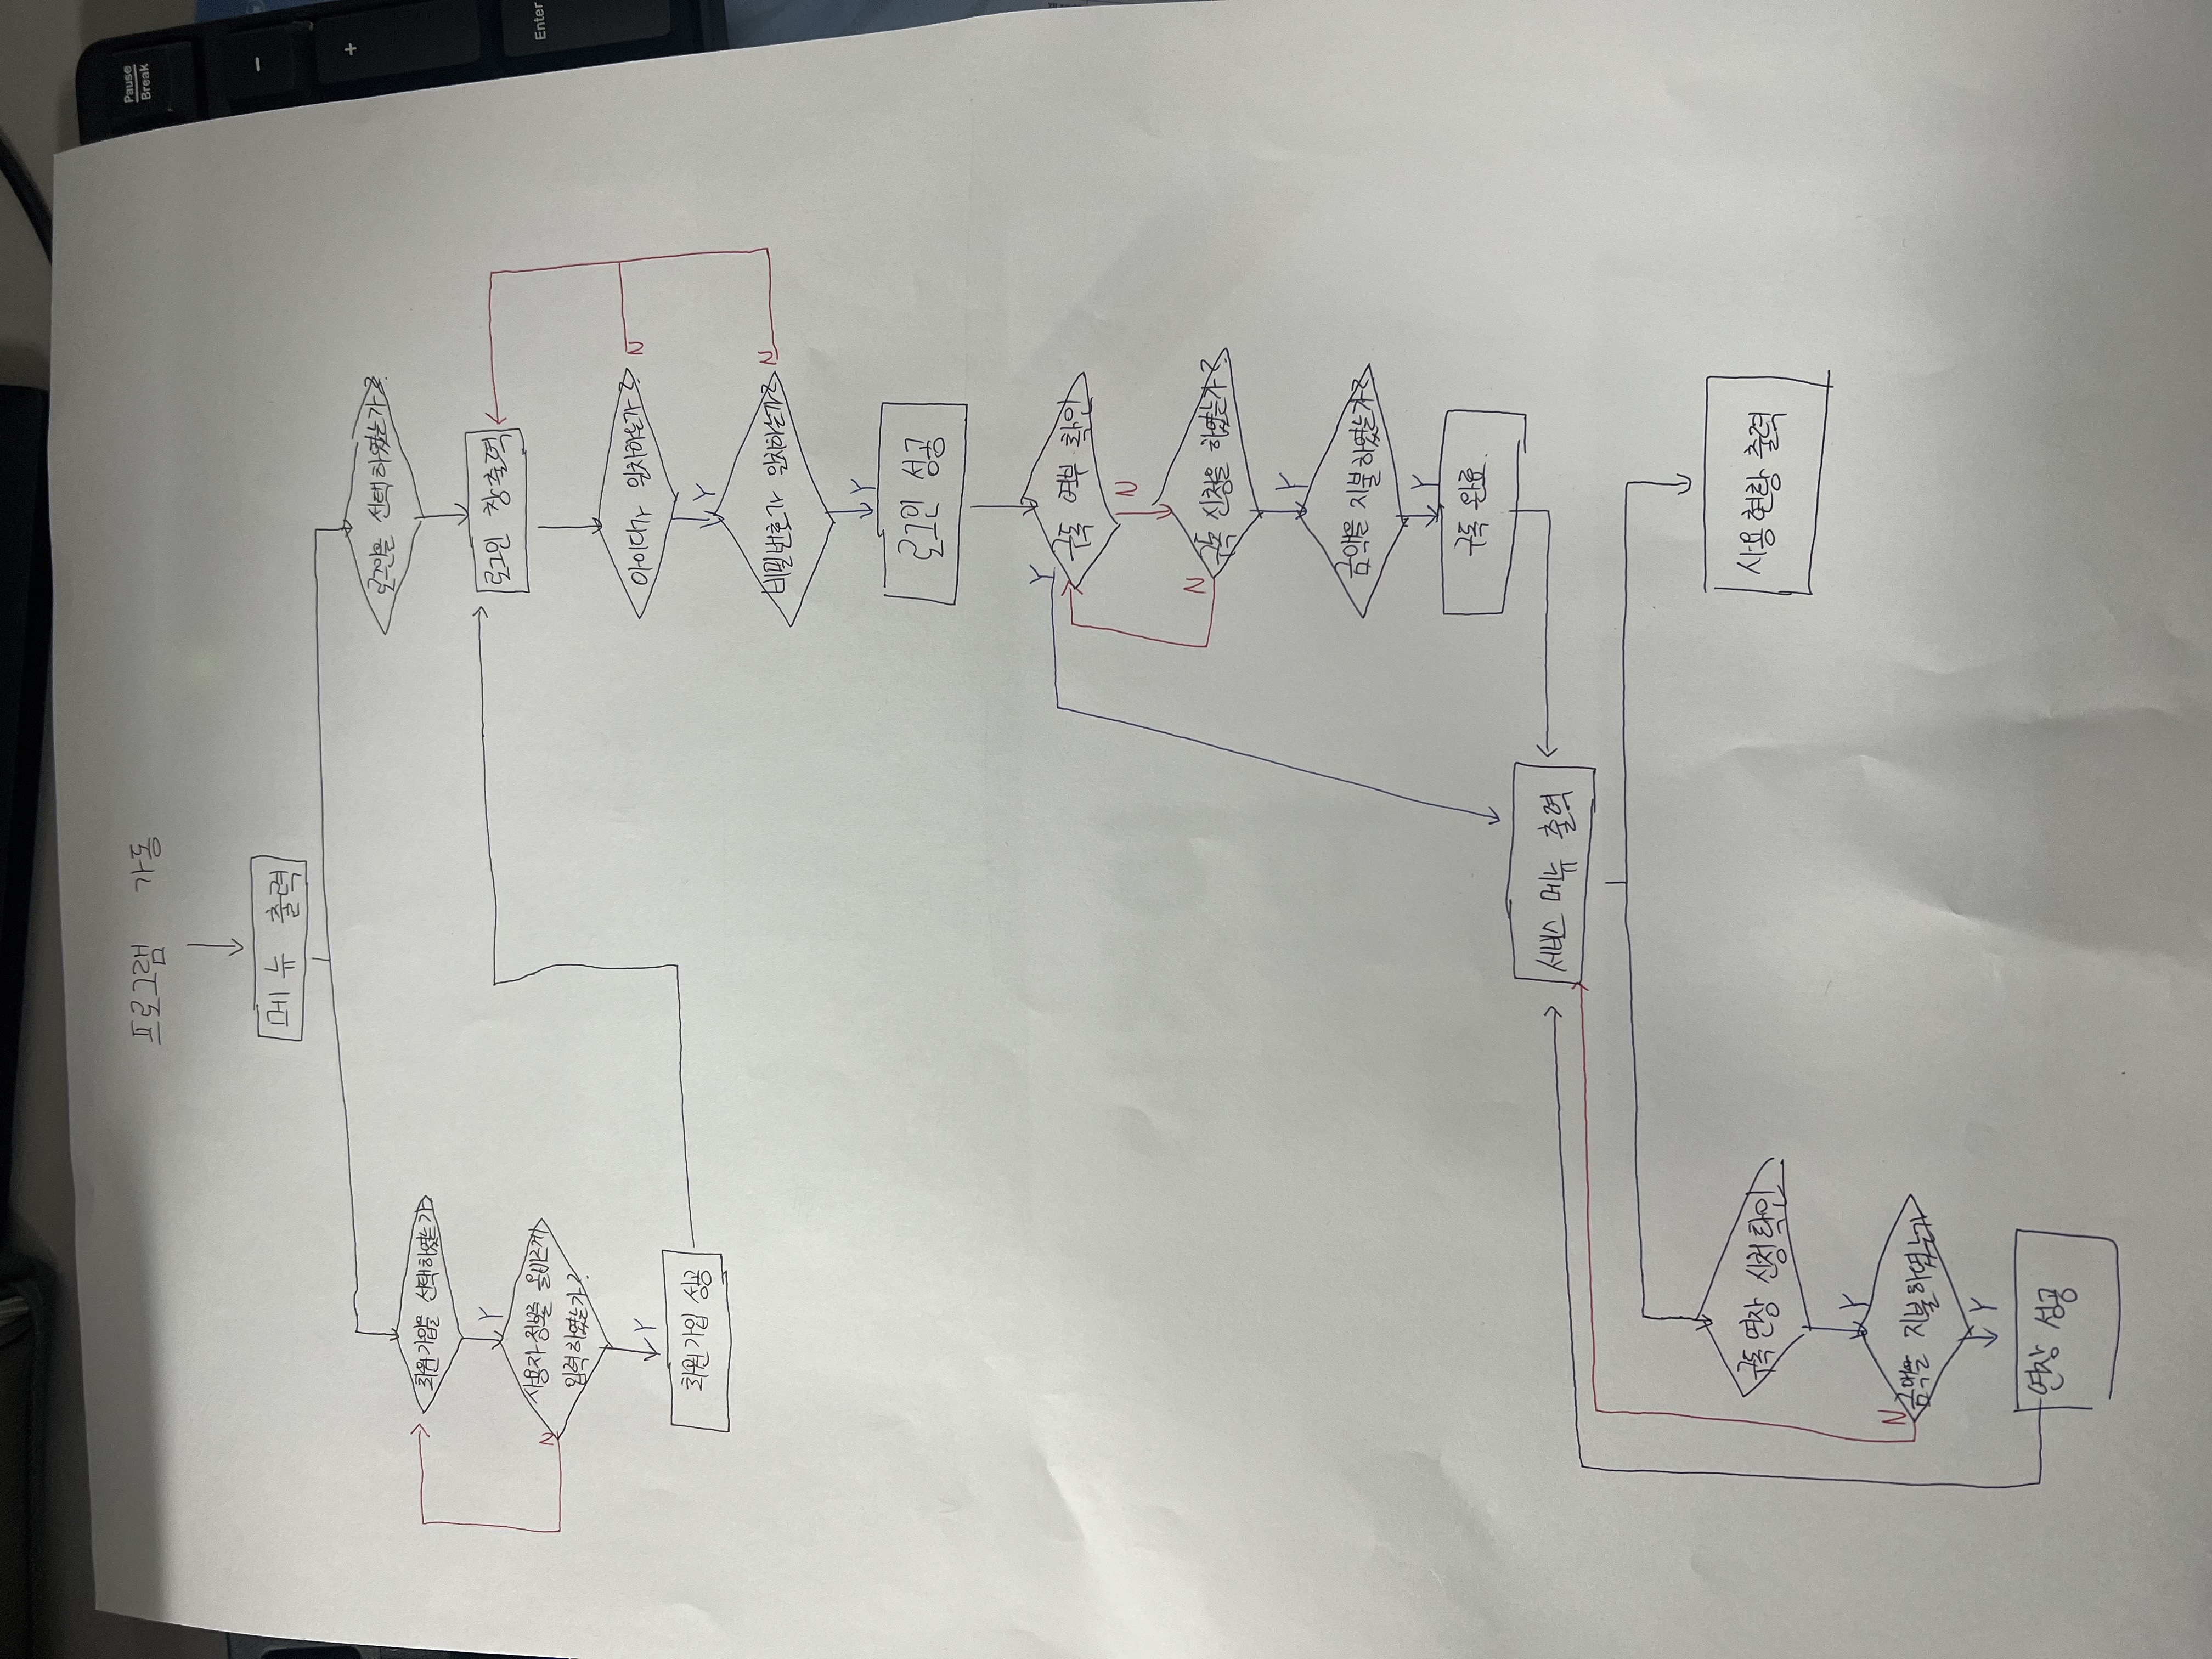 프로그램 가동
메뉴 출력
로그인을 선택하였는가?
회원가입을 선택하였는가
Y
사용자 정보를 올바르게
입력하였는가?
N
Y
회원가입 성공
로그인 창출력
아이디가 일치하는가?
N
Y
비밀번호가 일치하는가?
N
Y
로그인 성공
구독 여부 확인
Y
N
구독 신청을 하였는가?
N
Y
금액을 지불하였는가?
Y
구독 완료.
서비스 메뉴 출력
구독 연장 신청확인
Y
금액을 지불하였는가
N
Y
연장 성공
사용현황 출력
Pause
Break
-
+
Enter